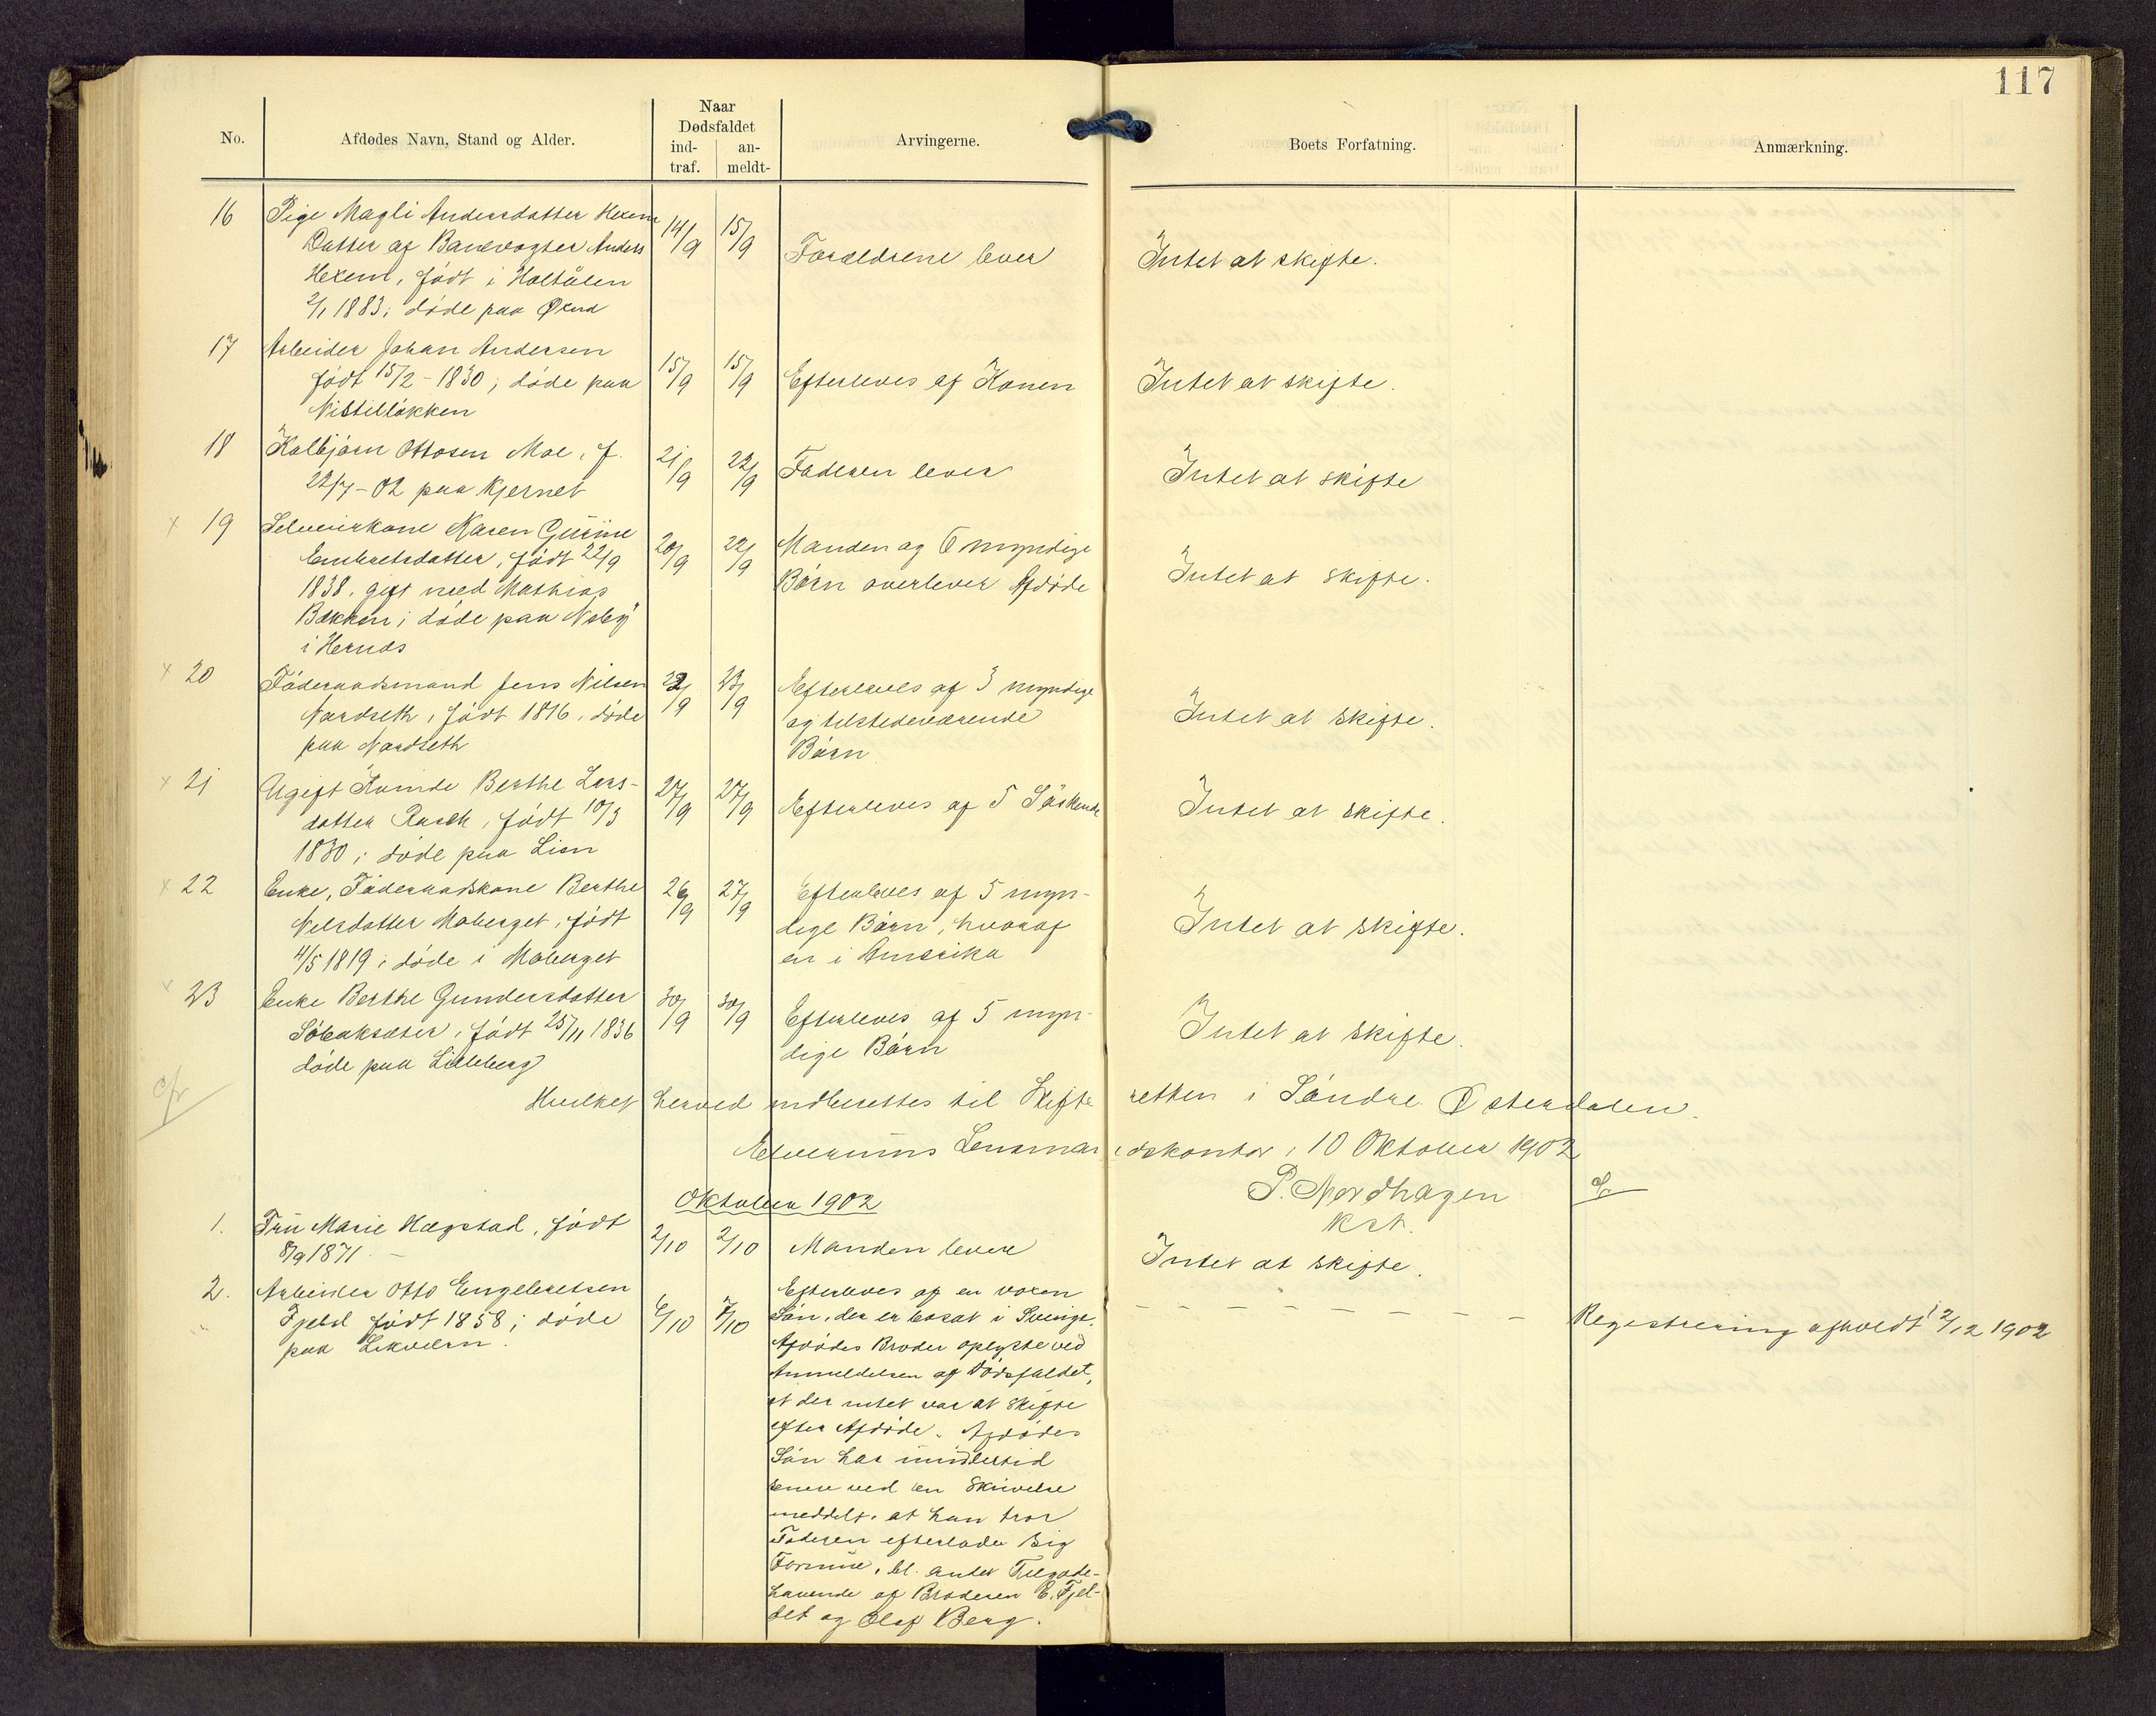 117
No.
Afdødes Navn, Stand og Alder.
Naar
Dødsfaldet
ind-
traf.
an-
meldt-
Arvingerne.
Boets Forfatning.
Anmærkning.
16 Pige Magli Andersdatter Hexem 14/9 15/9
Datter af Banevogter Anders
Hexem, født i Holtålen Forældrene lever Intet at skifte.
2/1 1883; døde paa Øxna
17 Arbeider Johan Andersen 15/9 15/9
født 15/2 - 1830; døde paa Efterleves af Konen Intet at skifte.
Nistilløkken
18 Kolbjørn Ottosen Moe, f. 21/9 22/9 Faderen lever Intet at skifte
22/7 - 02 paa Kjernet
x 19 Selveierkone Karen Gurine
Embretsdatter, født 22/9 20/9 22/9 Manden og 6 myndige
1838. gift med Mathias Børn overlever Afdøde Intet at skifte.
Bakken; døde paa Noby
i Hernæs
x 20 Føderaadsmand Jens Nilsen 22/9 23/9 Efterleves af 3 myndige
Nordseth, født 1816, døde og tilstedeværende Intet at skifte.
paa Nordseth Børn
x 21 Ugift Kvinde Berthe Lars- 27/9 27/9
datter Rasch, født 10/3 Efterleves af 5 Søskende Intet at skifte.
1830; døde paa Lien
x 22 Enke, Føderaadskone Berthe 26/9 27/9 Efterleves af 5 myn-
Nilsdatter Moberget, født dige Børn, hvoraf Intet at skifte.
4/5 1819; døde i Moberget en i Amerika
x 23 Enke Berthe Gundersdatter 30/9 30/9 Efterleves af 5 myn-
Søbaksæter, født 25/11 1836 dige Børn Intet at skifte.
døde paa Lilleberg
cfr
Hvilket herved indberettes til Skifteretten i Søndre Østerdalen.
Elverums Lensmandskontor, 10 Oktober 1902
P. Nordhagen
Kst.
Oktober 1902
1. Fru Marie Hægstad, født 2/10 2/10 Manden lever Intet at skifte.
8/9 1871
2. Arbeider Otto Engebretsen
Fjeld født 1858; døde 6/10 7/10 - - - - - - - Registrering afholdt 12/12 1902
paa Lekvern.
Efterleves af en voxen
Søn, der er bosat i Sverige.
Afdødes Broder oplyste ved
Anmeldelsen af Dødsfaldet,
at der intet var at skifte
efter Afdøde. Afdødes
Søn har imidlertid
senere ved en Skrivelse
meddelt, at han tror
Faderen efterlader sig
Formue, bl. andet Tilgode-
havende af Broderen E. Fjel-
det og Olaf Berg.